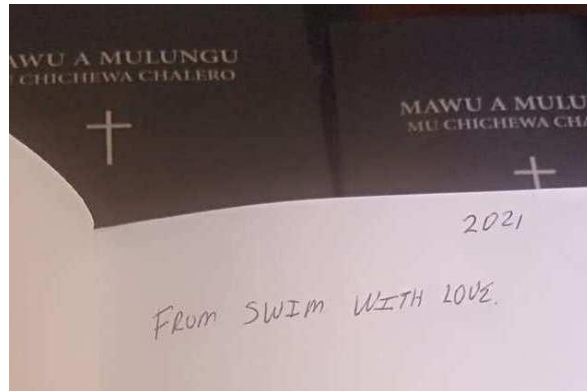 MAWU A MULUNGU
MU CHICHEWA CHALERO
MAWU A MULU
MU CHICHEWA CHA
2021
FROM SWIM WITH LOVE.